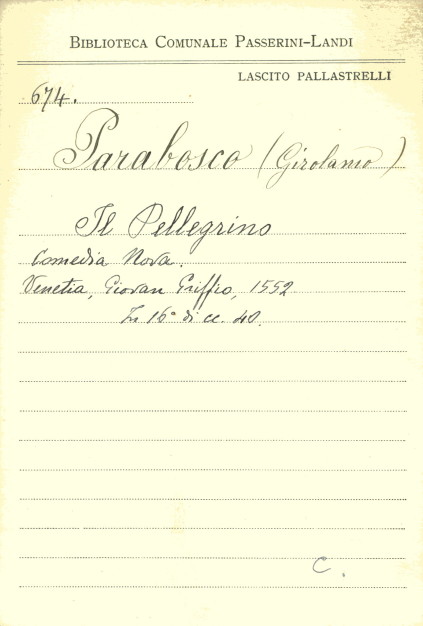 BIBLIOTECA COMUNALE PASSERINI-LANDI
LASCITO PALLASTRELLI
674.
Parabosco (Girolamo)
Il Pellegrino
Comedia Nova.
Venetia, Giovan Griffio, 1552
In 16° di cc. 40.
C.